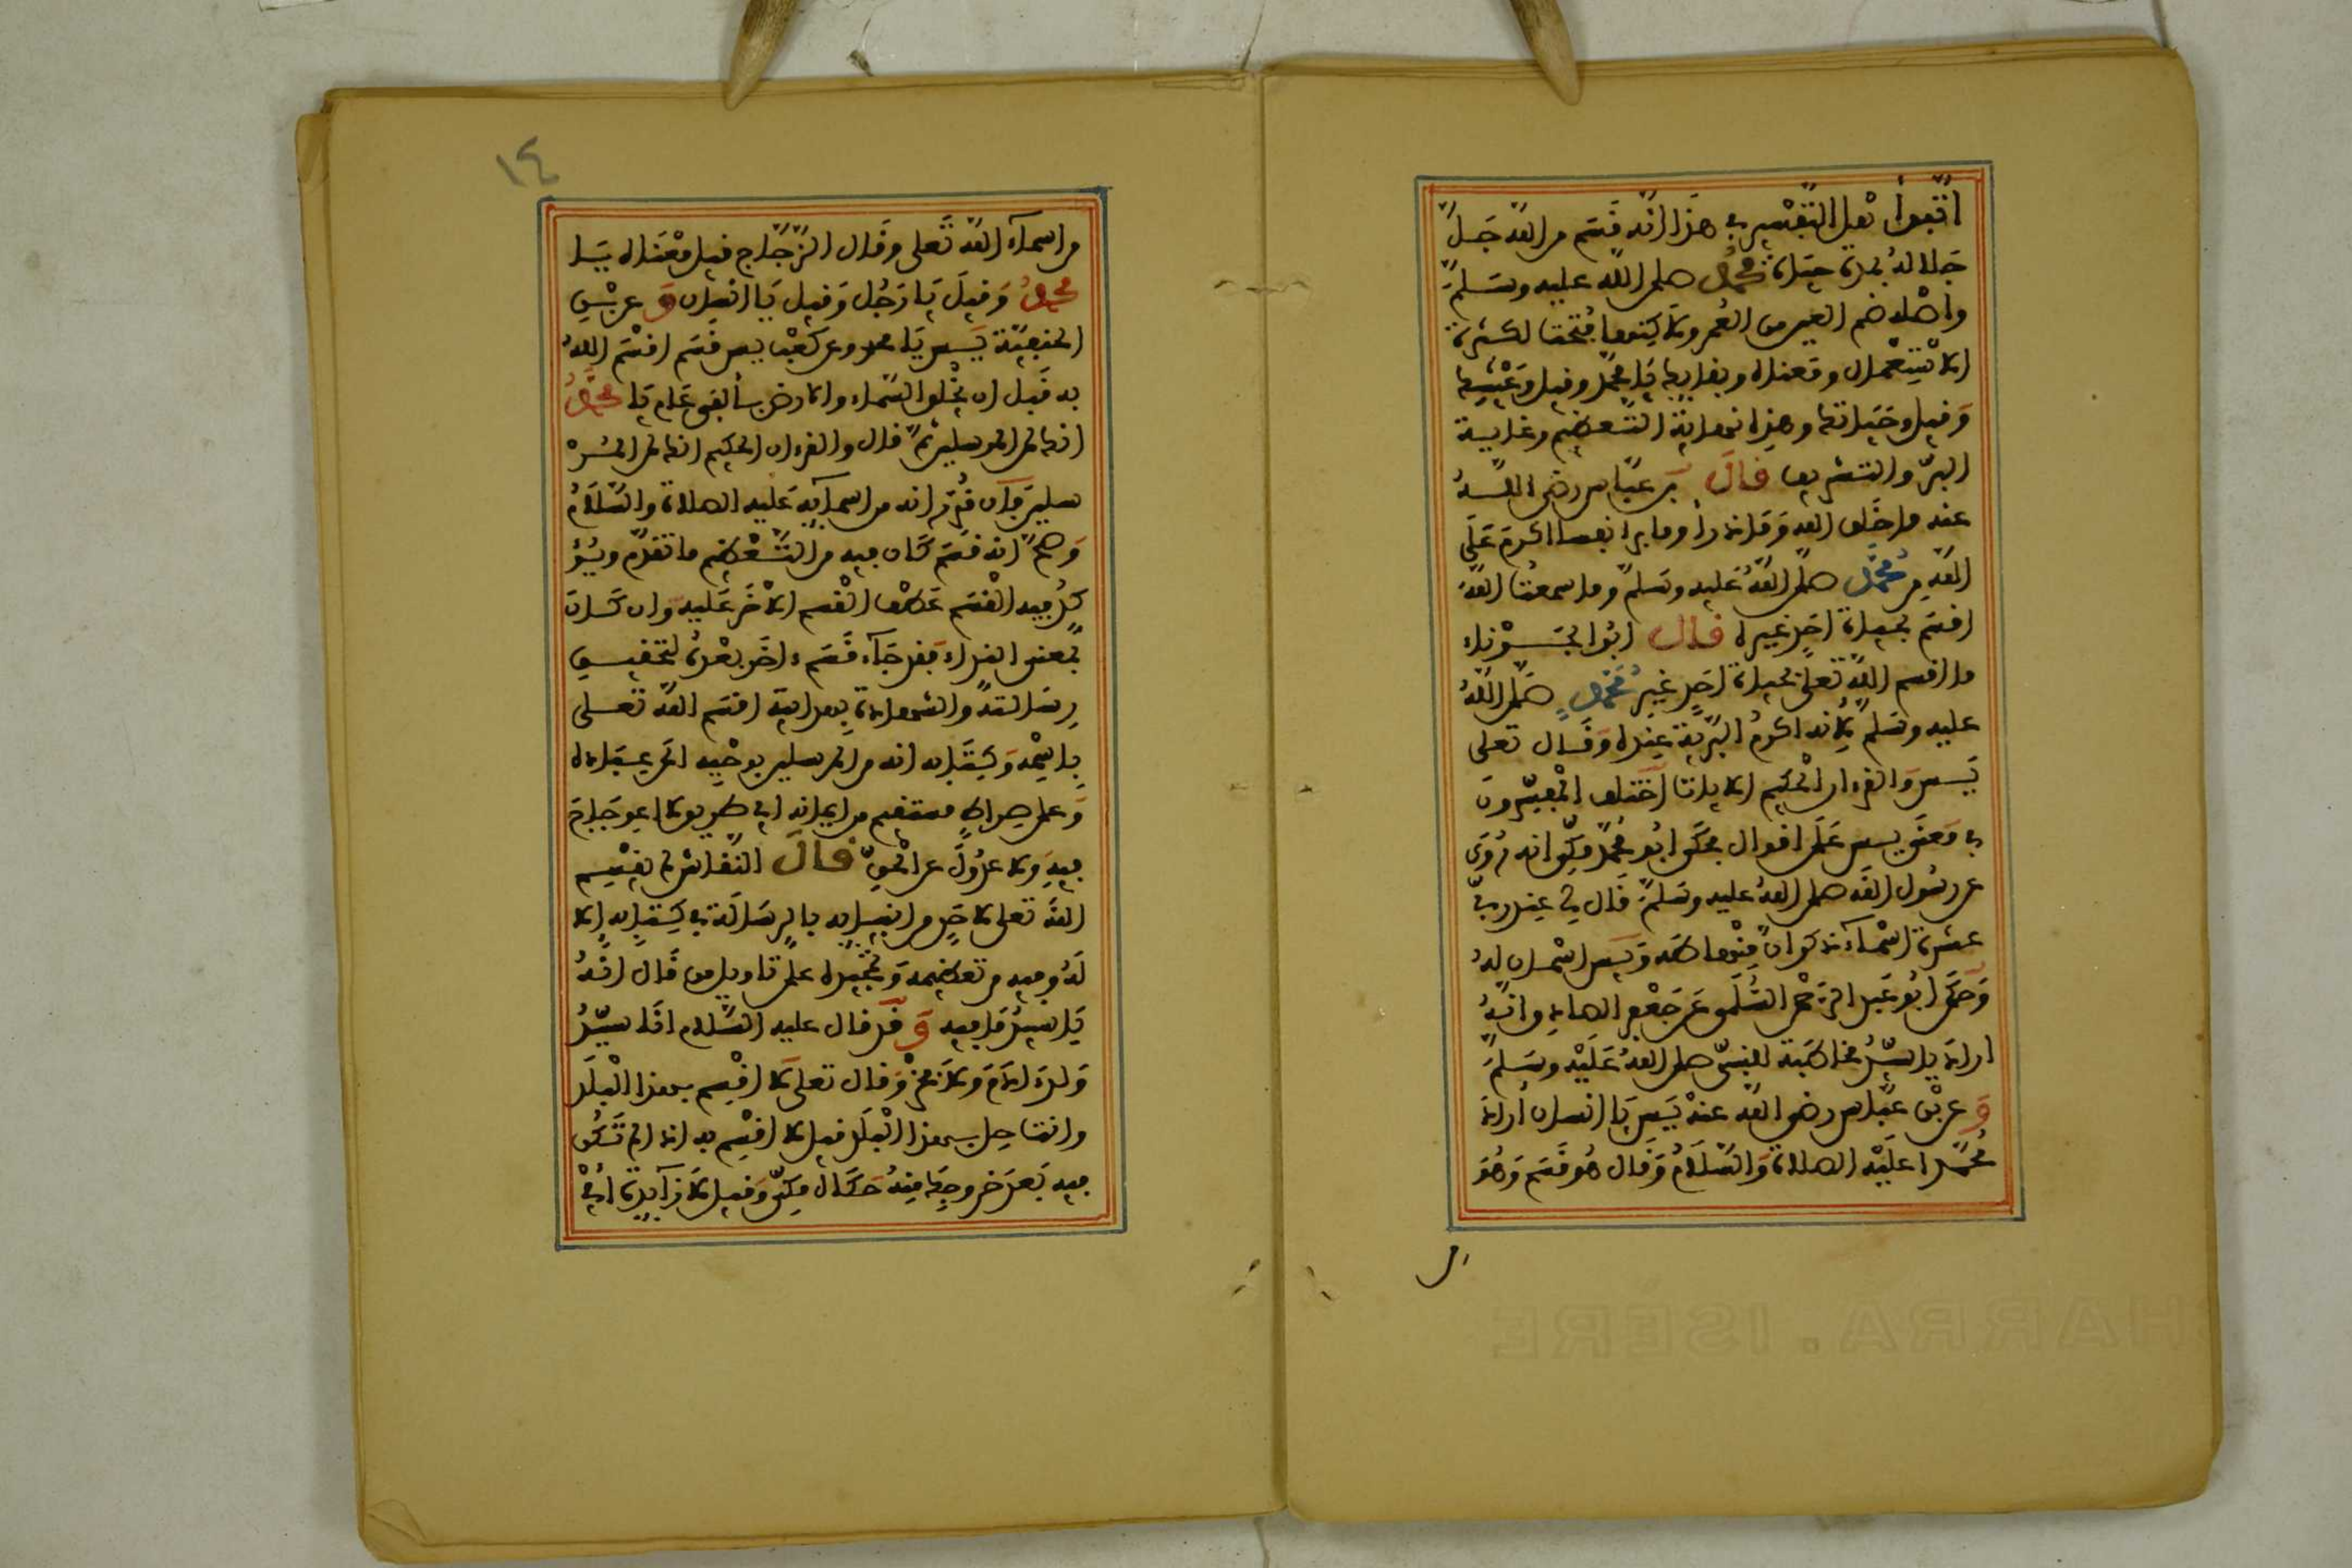 اتفقوا أهل التفسير في هذا انه قسم من الله جل
جلاله بمدة حياة محمد صلى الله عليه وسلم
واصله ضم العين من العمر ولاكنها فتحت لكثرة
الاستعمال ومعناه وبقايك يا محمد وقيل وعيشك
وقيل وحياتك وهذه نهاية التعظيم وغاية
البر والتشريف قال بن عباس رضي الله
عنه ما خلق الله وما ذرأ وما برا نفسا اكرم على
الله من محمد صلى الله عليه وسلم وما سمعت الله
اقسم بحياة احد غيره قال ابو الجوزاء
ما اقسم الله تعلى بحياة احد غير محمد صلى الله
عليه وسلم لانه اكرم البرية عنده وقال تعلى
يس والقرءان الحكيم الايات اختلف المفسرون
في معنى يس على اقوال فحكى ابو محمد مكي انه روى
عن رسول الله صلى الله عليه وسلم قال لي عند ربي
عشرة اسماء ذكر ان منها طه ويس اسمان له
وحكى ابو عبد الرحمن السلمي عن جعفر الصادق انه
اراد يا سيد مخاطبة لنبيه صلى الله عليه وسلم
وعن بن عباس رضي الله عنه يس يا انسان اراد
محمدا عليه الصلاة والسلام وقال هو قسم وهو
من
١٤
من اسماء الله تعلى وقال الزجاج قيل معناه يا
محمد وقيل يا رجل وقيل يا انسان وعن بن
الحنفية يس يا محمد وعن كعب يس قسم اقسم الله
به قبل ان يخلق السماء والارض بألفي عام يا محمد
انك لمن المرسلين ثم قال والقرءان الحكيم انك لمن المر
سلين فان قدر انه من اسمايه عليه الصلاة والسلام
وصح انه قسم كان فيه من التعظيم ما تقدم ويؤ
كد فيه القسم عطف القسم الاخر عليه وان كان
بمعنى النداء فقد جاء قسم ءاخر بعده لتحقيق
رسالته والشهادة بهدايته اقسم الله تعلى
باسمه وكتابه انه من المرسلين بوحيه الى عباده
وعلى صراط مستقيم من ايمانه اي طريق لا اعوجاج
فيه ولا عدول عن الحق قال النقاش لم يقسم
الله تعلى لاحد من انبيايه بالرسالة في كتابه الا
له وفيه من تعظيمه وتمجيده على تاويل من قال انه
يا سيد ما فيه وقد قال عليه السلام انا سيد
ولد ءادم ولا فخر وقال تعلى لا اقسم بهذا البلد
وانت حل بهذا البلد قيل لا اقسم به اذا لم تكن
فيه بعد خروجك منه حكاه مكي وقيل لا زايدة اي